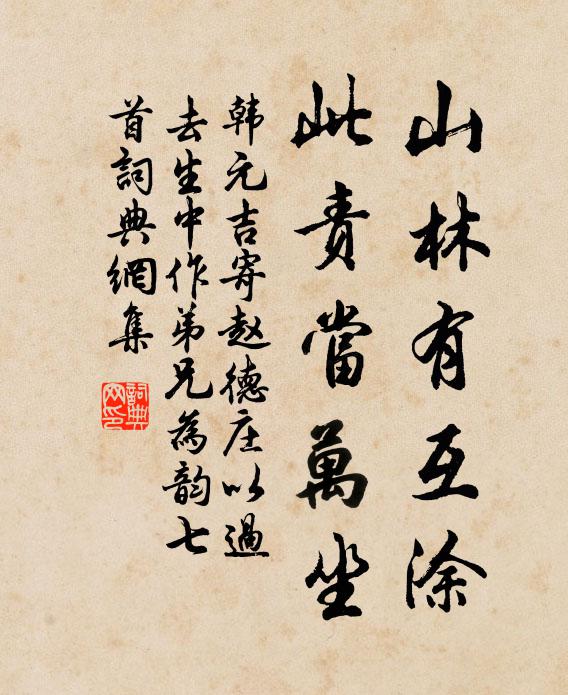 山林有互涂
此责當萬坐
韩元吉寄赵德庄以過
去生中作弟兄為韵七
首詞典網集
詞典
网印